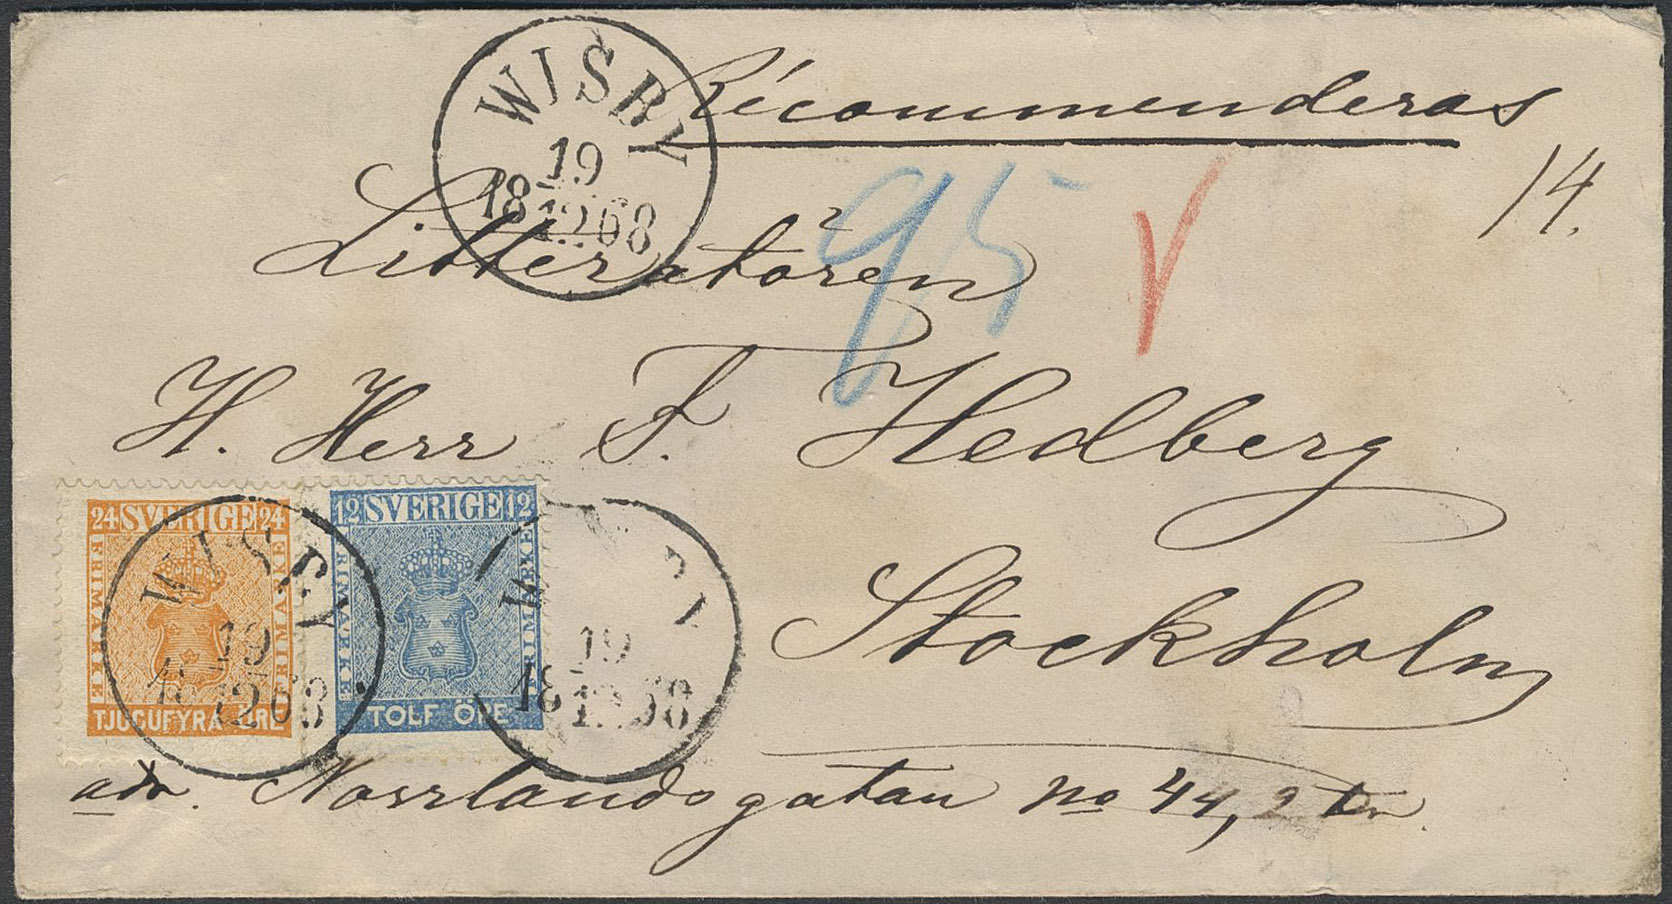 Récommenderas
WISBY
19
18 12 68
14.
95
Litteratören
H. Herr F. Hedberg
Stockholm
24 SVERIGE 24
FRIMÄRKE
FRIMÄRKE
TJUGUFYRA ÖRE
12 SVERIGE 12
FRIMÄRKE
FRIMÄRKE
TOLF ÖRE
WISBY
19
18 12 68
WISBY
19
18 12 68
adr. Norrlandsgatan No 44, 2 tr.